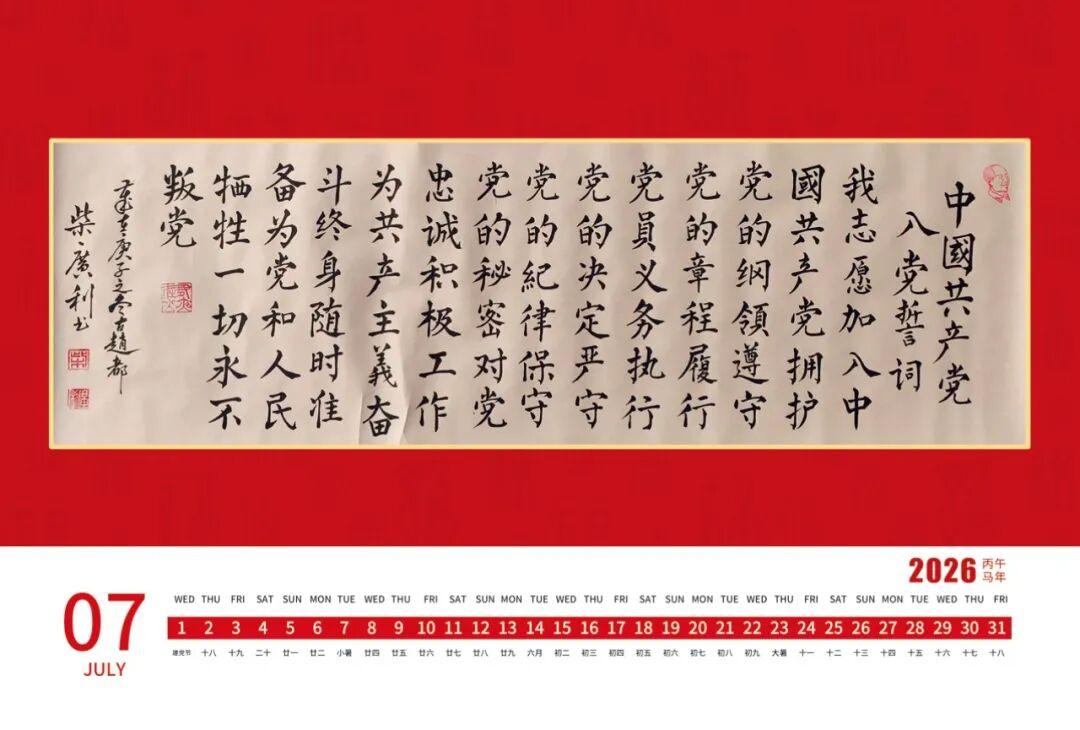 中國共产党
入党誓词
我志愿加入中
國共产党拥护
党的纲領遵守
党的章程履行
党員义务执行
党的决定严守
党的紀律保守
党的秘密对党
忠诚积极工作
为共产主義奋
斗终身随时准
备为党和人民
牺牲一切永不
叛党
歲在庚子之冬古趙都
柴廣利书
2026 丙午马年
07
JULY
WED THU FRI SAT SUN MON TUE WED THU FRI SAT SUN MON TUE WED THU FRI SAT SUN MON TUE WED THU FRI SAT SUN MON TUE WED THU FRI
1 2 3 4 5 6 7 8 9 10 11 12 13 14 15 16 17 18 19 20 21 22 23 24 25 26 27 28 29 30 31
建党节 十八 十九 二十 廿一 廿二 小暑 廿四 廿五 廿六 廿七 廿八 廿九 六月 初二 初三 初四 初五 初六 初七 初八 初九 大暑 十一 十二 十三 十四 十五 十六 十七 十八